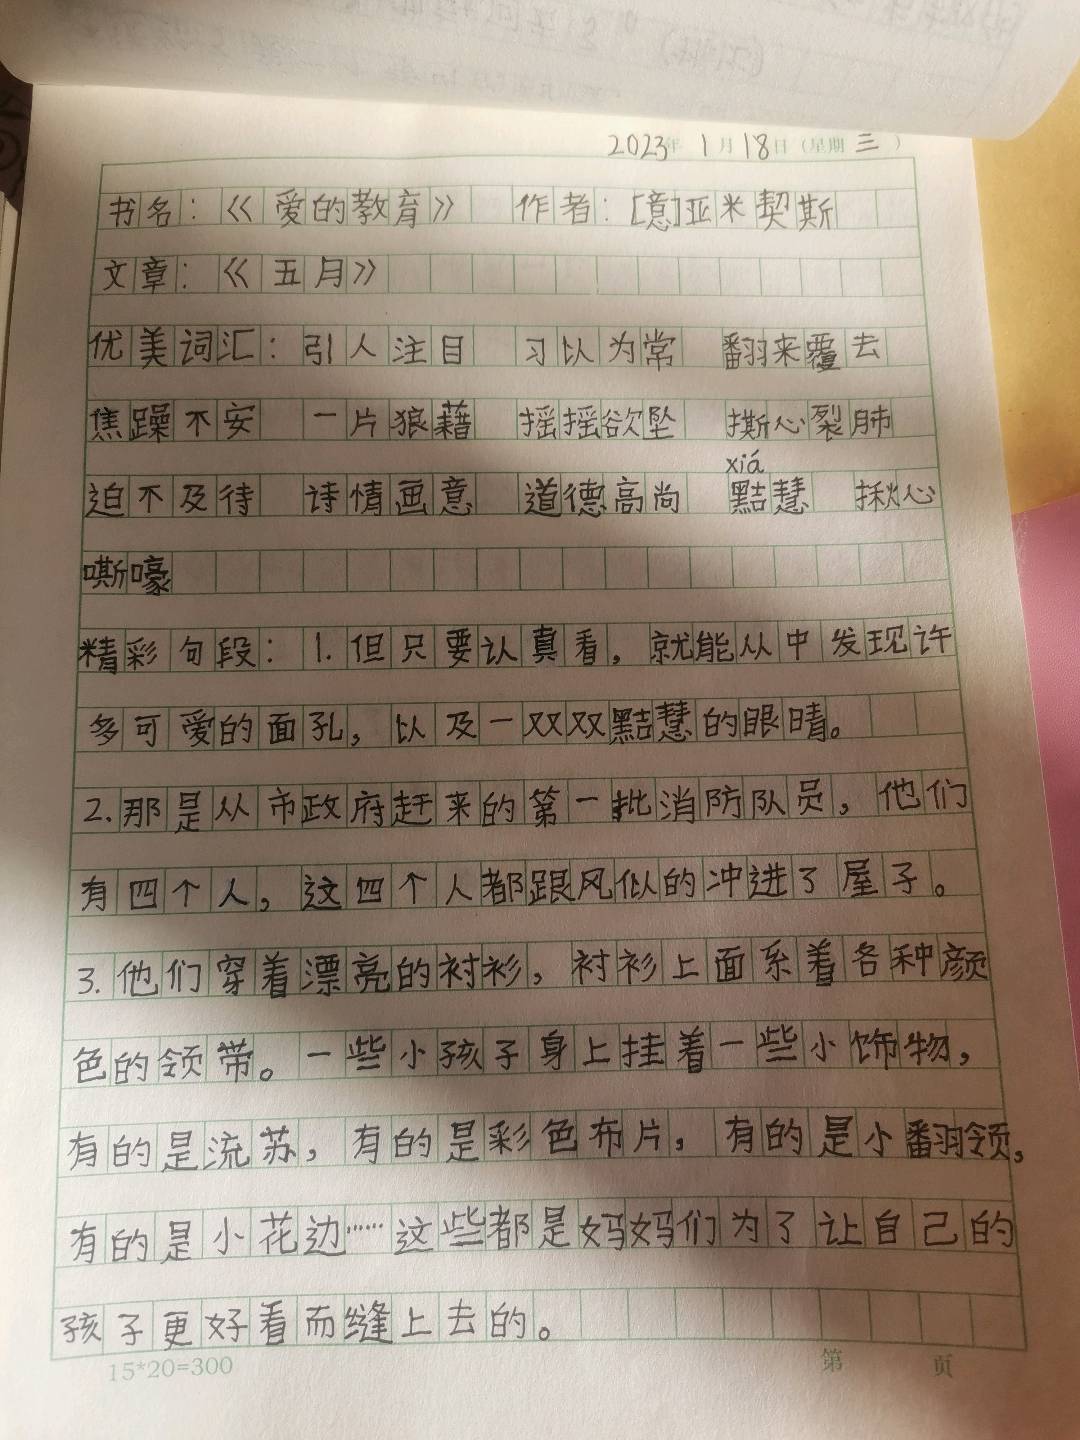 2023年 1月18日（星期三）
书名：《爱的教育》 作者：[意]亚米契斯
文章：《五月》
优美词汇：引人注目 习以为常 翻来覆去
焦躁不安 一片狼藉 摇摇欲坠 撕心裂肺
xiá
迫不及待 诗情画意 道德高尚 黠慧 揪心
嘶嚎
精彩句段：1.但只要认真看，就能从中发现许
多可爱的面孔，以及一双双黠慧的眼睛。
2.那是从市政府赶来的第一批消防队员，他们
有四个人，这四个人都跟风似的冲进了屋子。
3.他们穿着漂亮的衬衫，衬衫上面系着各种颜
色的领带。一些小孩子身上挂着一些小饰物，
有的是流苏，有的是彩色布片，有的是小翻领，
有的是小花边……这些都是妈妈们为了让自己的
孩子更好看而缝上去的。
15*20=300 第 页